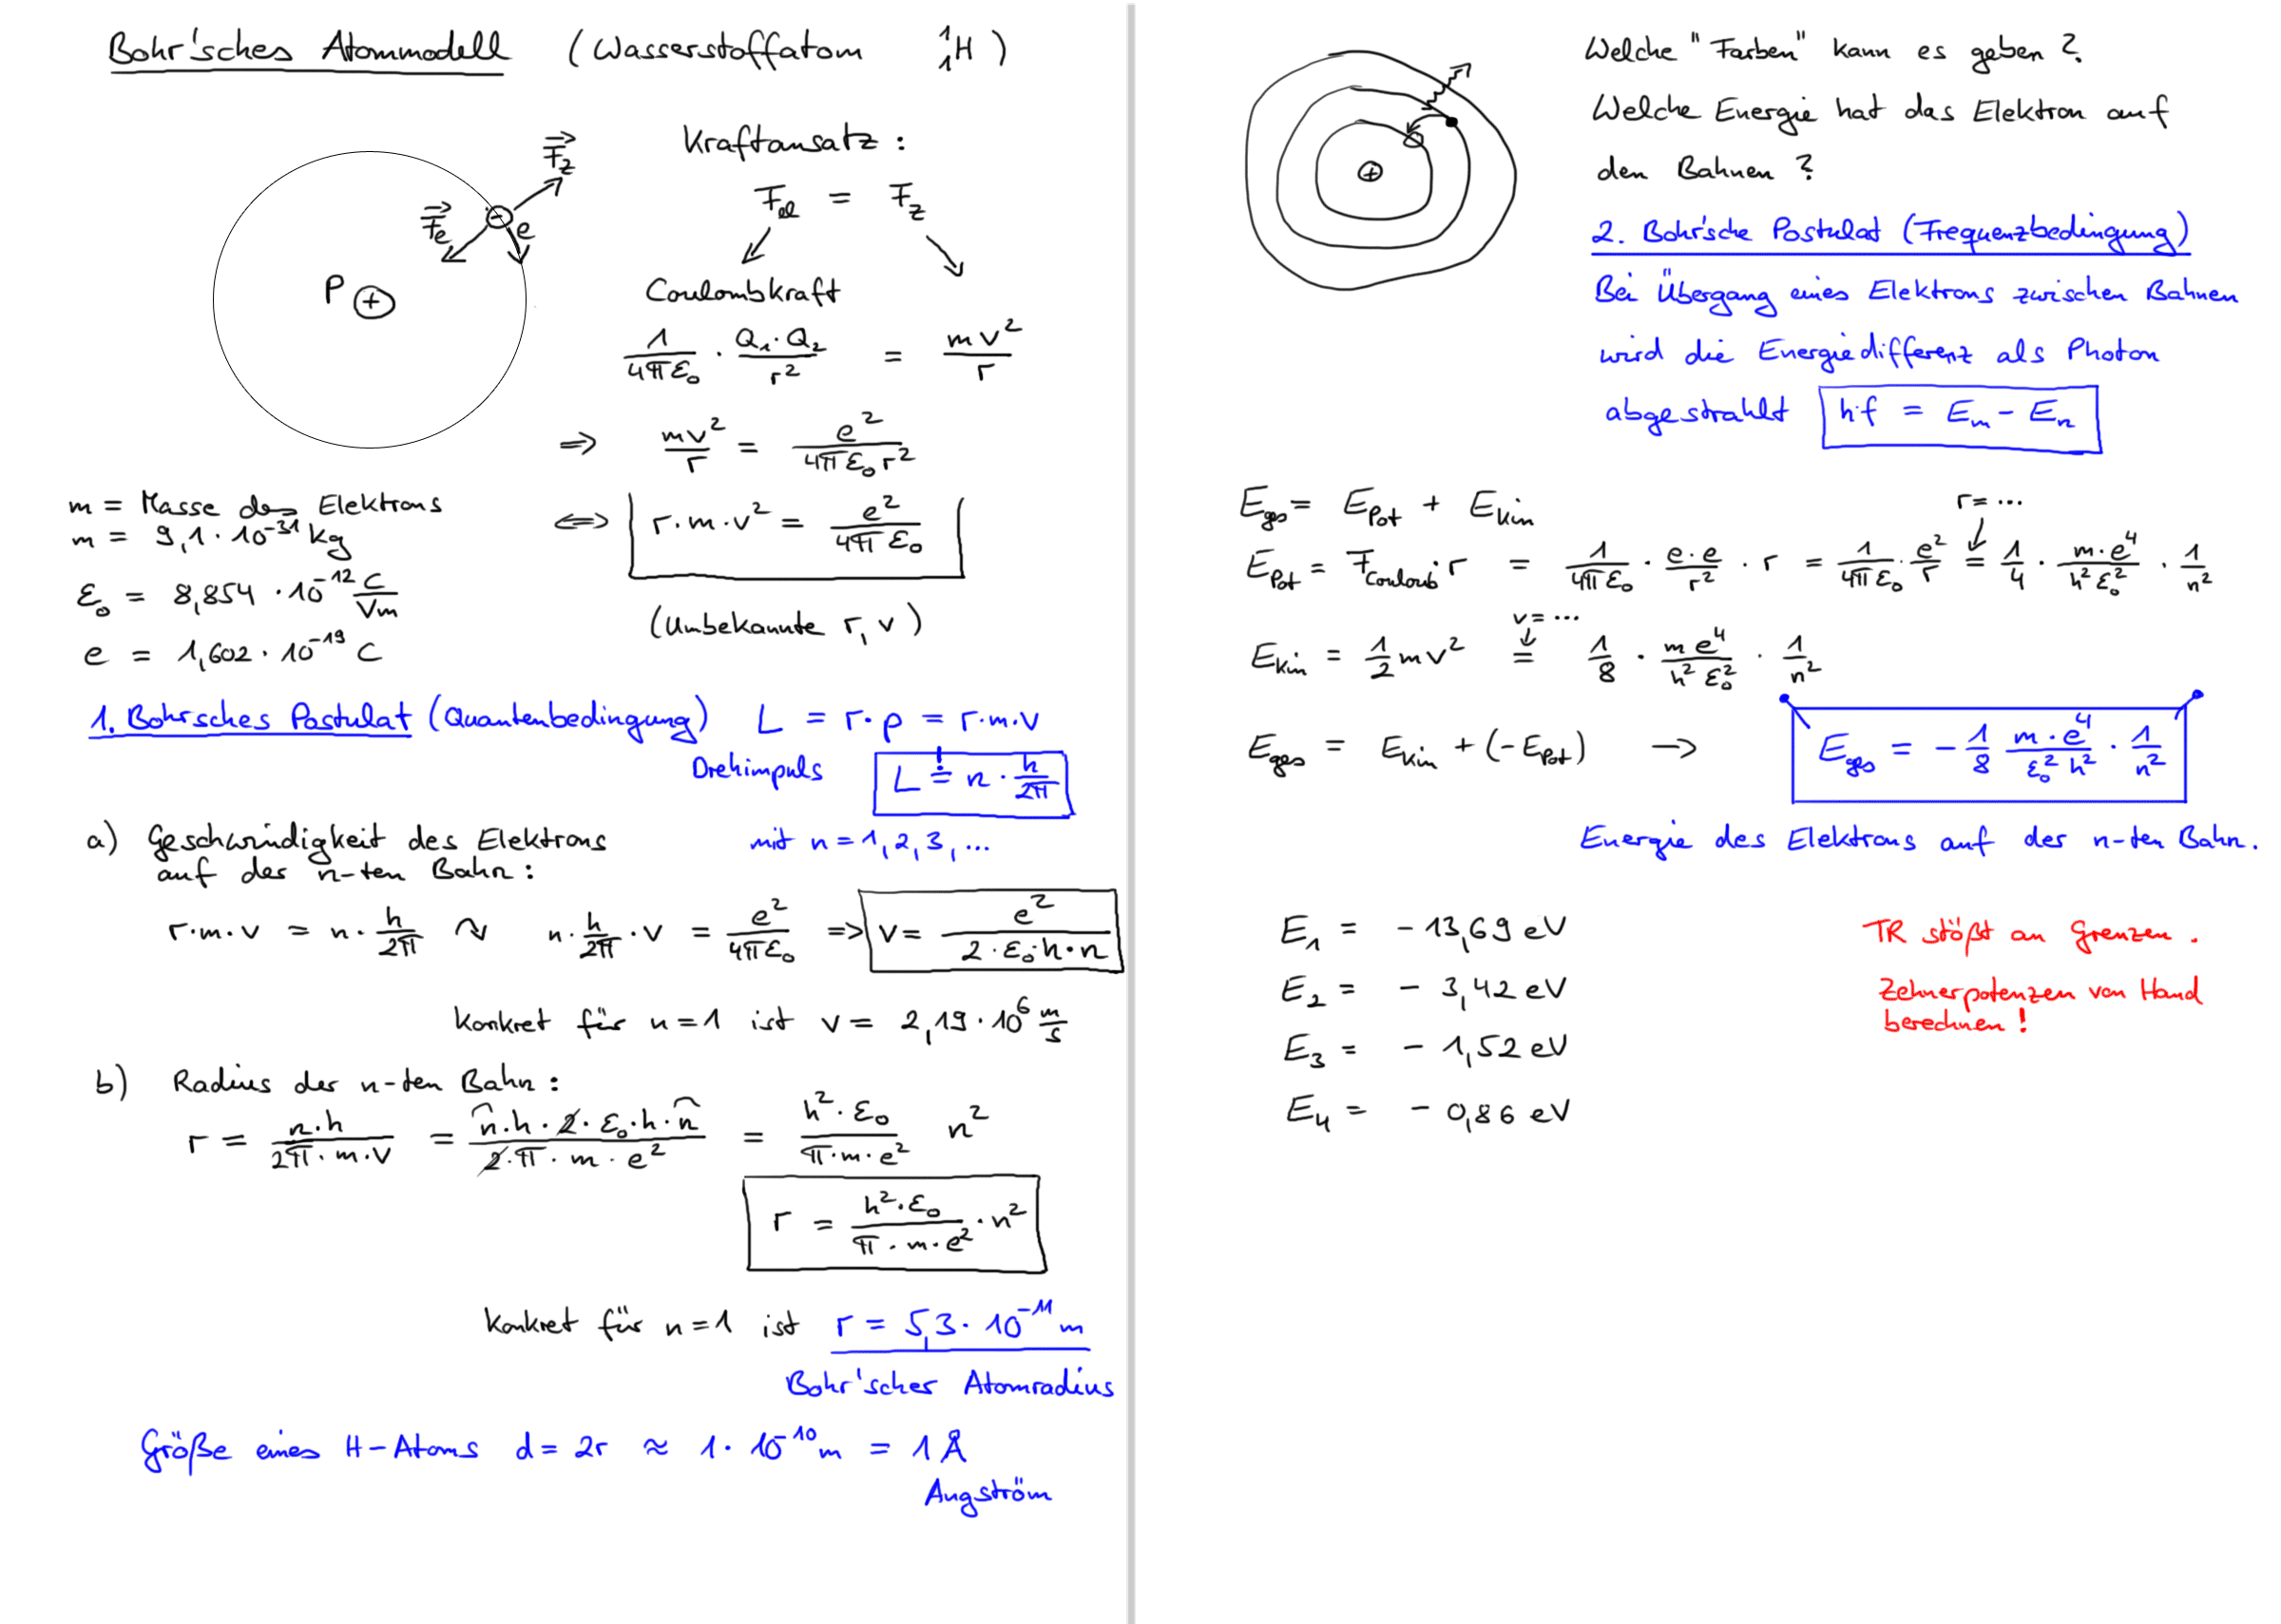 Bohr'sches Atommodell (Wasserstoffatom ¹₁H)
F⃗z
F⃗e
e
P +
Kraftansatz:
Fel = Fz
Coulombkraft
1/(4πε₀) · (Q₁·Q₂)/r² = mv²/r
⇒ mv²/r = e²/(4πε₀r²)
⇔ r·m·v² = e²/(4πε₀)
(Unbekannte r, v)
m = Masse des Elektrons
m = 9,1·10⁻³¹ kg
ε₀ = 8,854 · 10⁻¹² C/Vm
e = 1,602 · 10⁻¹⁹ C
1. Bohrsches Postulat (Quantenbedingung) L = r·p = r·m·v
Drehimpuls L =! n · h/2π
mit n = 1, 2, 3, ...
a) Geschwindigkeit des Elektrons
auf der n-ten Bahn:
r·m·v = n · h/2π ↷ n · h/2π · v = e²/(4πε₀) => v = e²/(2·ε₀·h·n)
Konkret für n=1 ist v = 2,19·10⁶ m/s
b) Radius der n-ten Bahn:
r = n·h/(2π·m·v) = (n·h·2·ε₀·h·n)/(2·π·m·e²) = (h²·ε₀)/(π·m·e²) n²
r = (h²·ε₀)/(π·m·e²) · n²
Konkret für n=1 ist r = 5,3·10⁻¹¹ m
Bohr'scher Atomradius
Größe eines H-Atoms d = 2r ≈ 1·10⁻¹⁰ m = 1 Å
Angström
+
Welche "Farben" kann es geben?
Welche Energie hat das Elektron auf
den Bahnen?
2. Bohr'sche Postulat (Frequenzbedingung)
Bei Übergang eines Elektrons zwischen Bahnen
wird die Energiedifferenz als Photon
abgestrahlt h·f = Em − En
Eges = EPot + EKin
r = ...
EPot = FCoulomb·r = 1/(4πε₀) · (e·e)/r² · r = 1/(4πε₀) · e²/r = 1/4 · (m·e⁴)/(h²ε₀²) · 1/n²
v = ...
EKin = 1/2 mv² = 1/8 · (me⁴)/(h²ε₀²) · 1/n²
Eges = EKin + (−EPot) → Eges = −1/8 (m·e⁴)/(ε₀²h²) · 1/n²
Energie des Elektrons auf der n-ten Bahn.
E₁ = − 13,69 eV
E₂ = − 3,42 eV
E₃ = − 1,52 eV
E₄ = − 0,86 eV
TR stößt an Grenzen.
Zehnerpotenzen von Hand
berechnen!